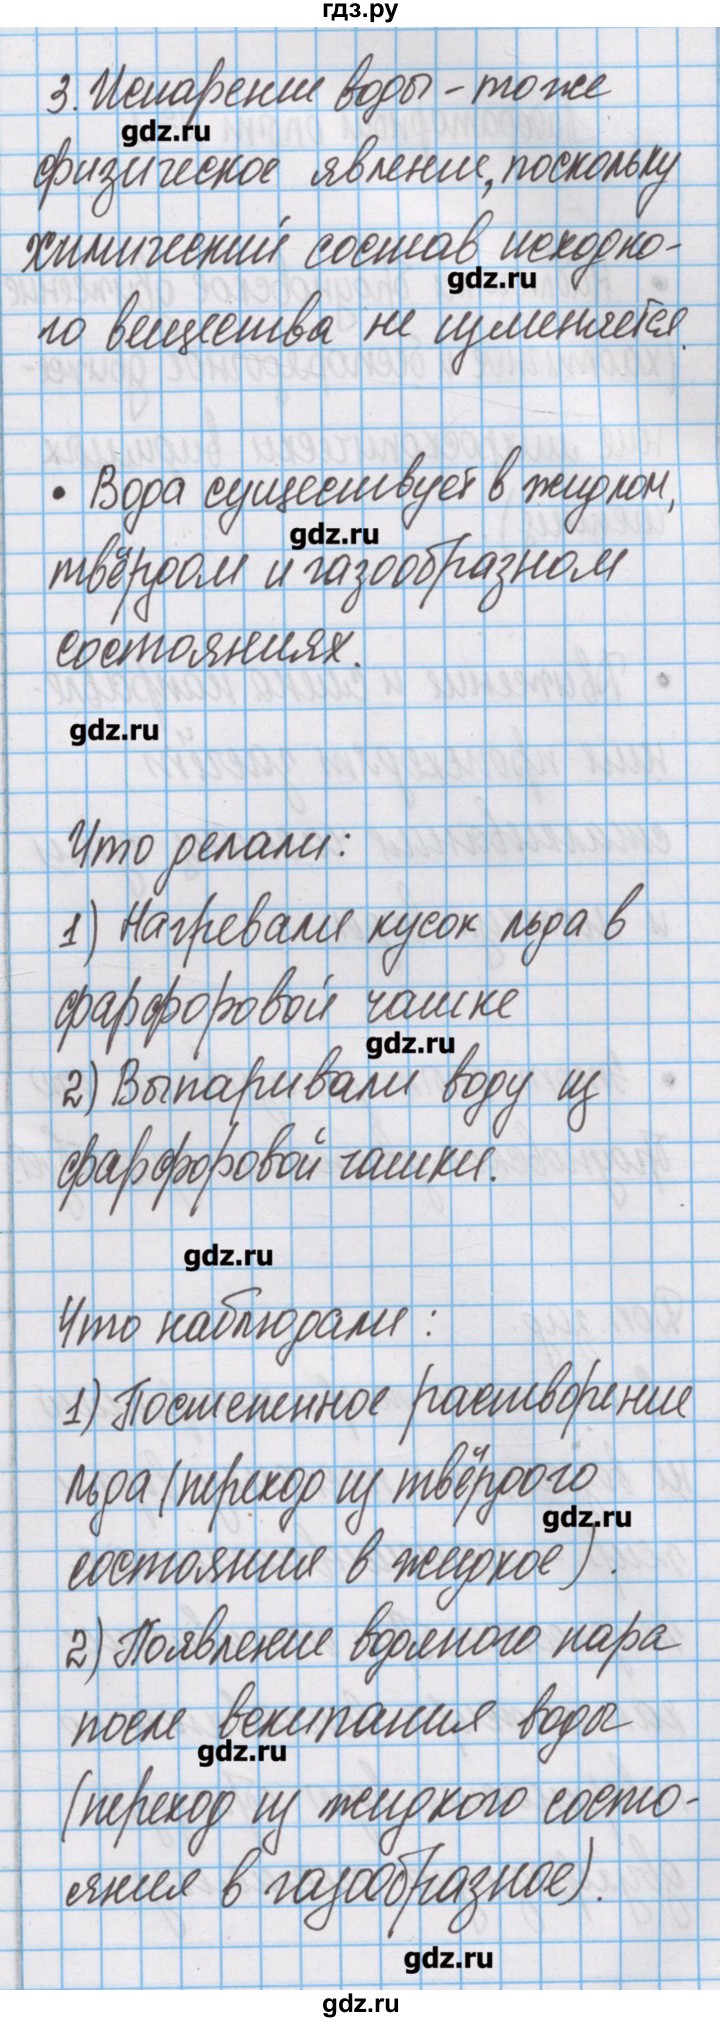 гдз.ру
3. Испарение воды - тоже
gdz.ru
физическое явление, поскольку
химический состав исходно-
gdz.ru
го вещества не изменяется.
• Вода существует в жидком,
gdz.ru
твёрдом и газообразном
состояниях.
gdz.ru
Что делали:
1) Нагревали кусок льда в
фарфоровой чашке
gdz.ru
2) Выпаривали воду из
фарфоровой чашки.
gdz.ru
Что наблюдали:
1) Постепенное растворение
льда (переход из твёрдого
gdz.ru
состояния в жидкое).
2) Появление водяного пара
после вскипания воды
gdz.ru
(переход из жидкого состо-
яния в газообразное).
gdz.ru
gdz.ru